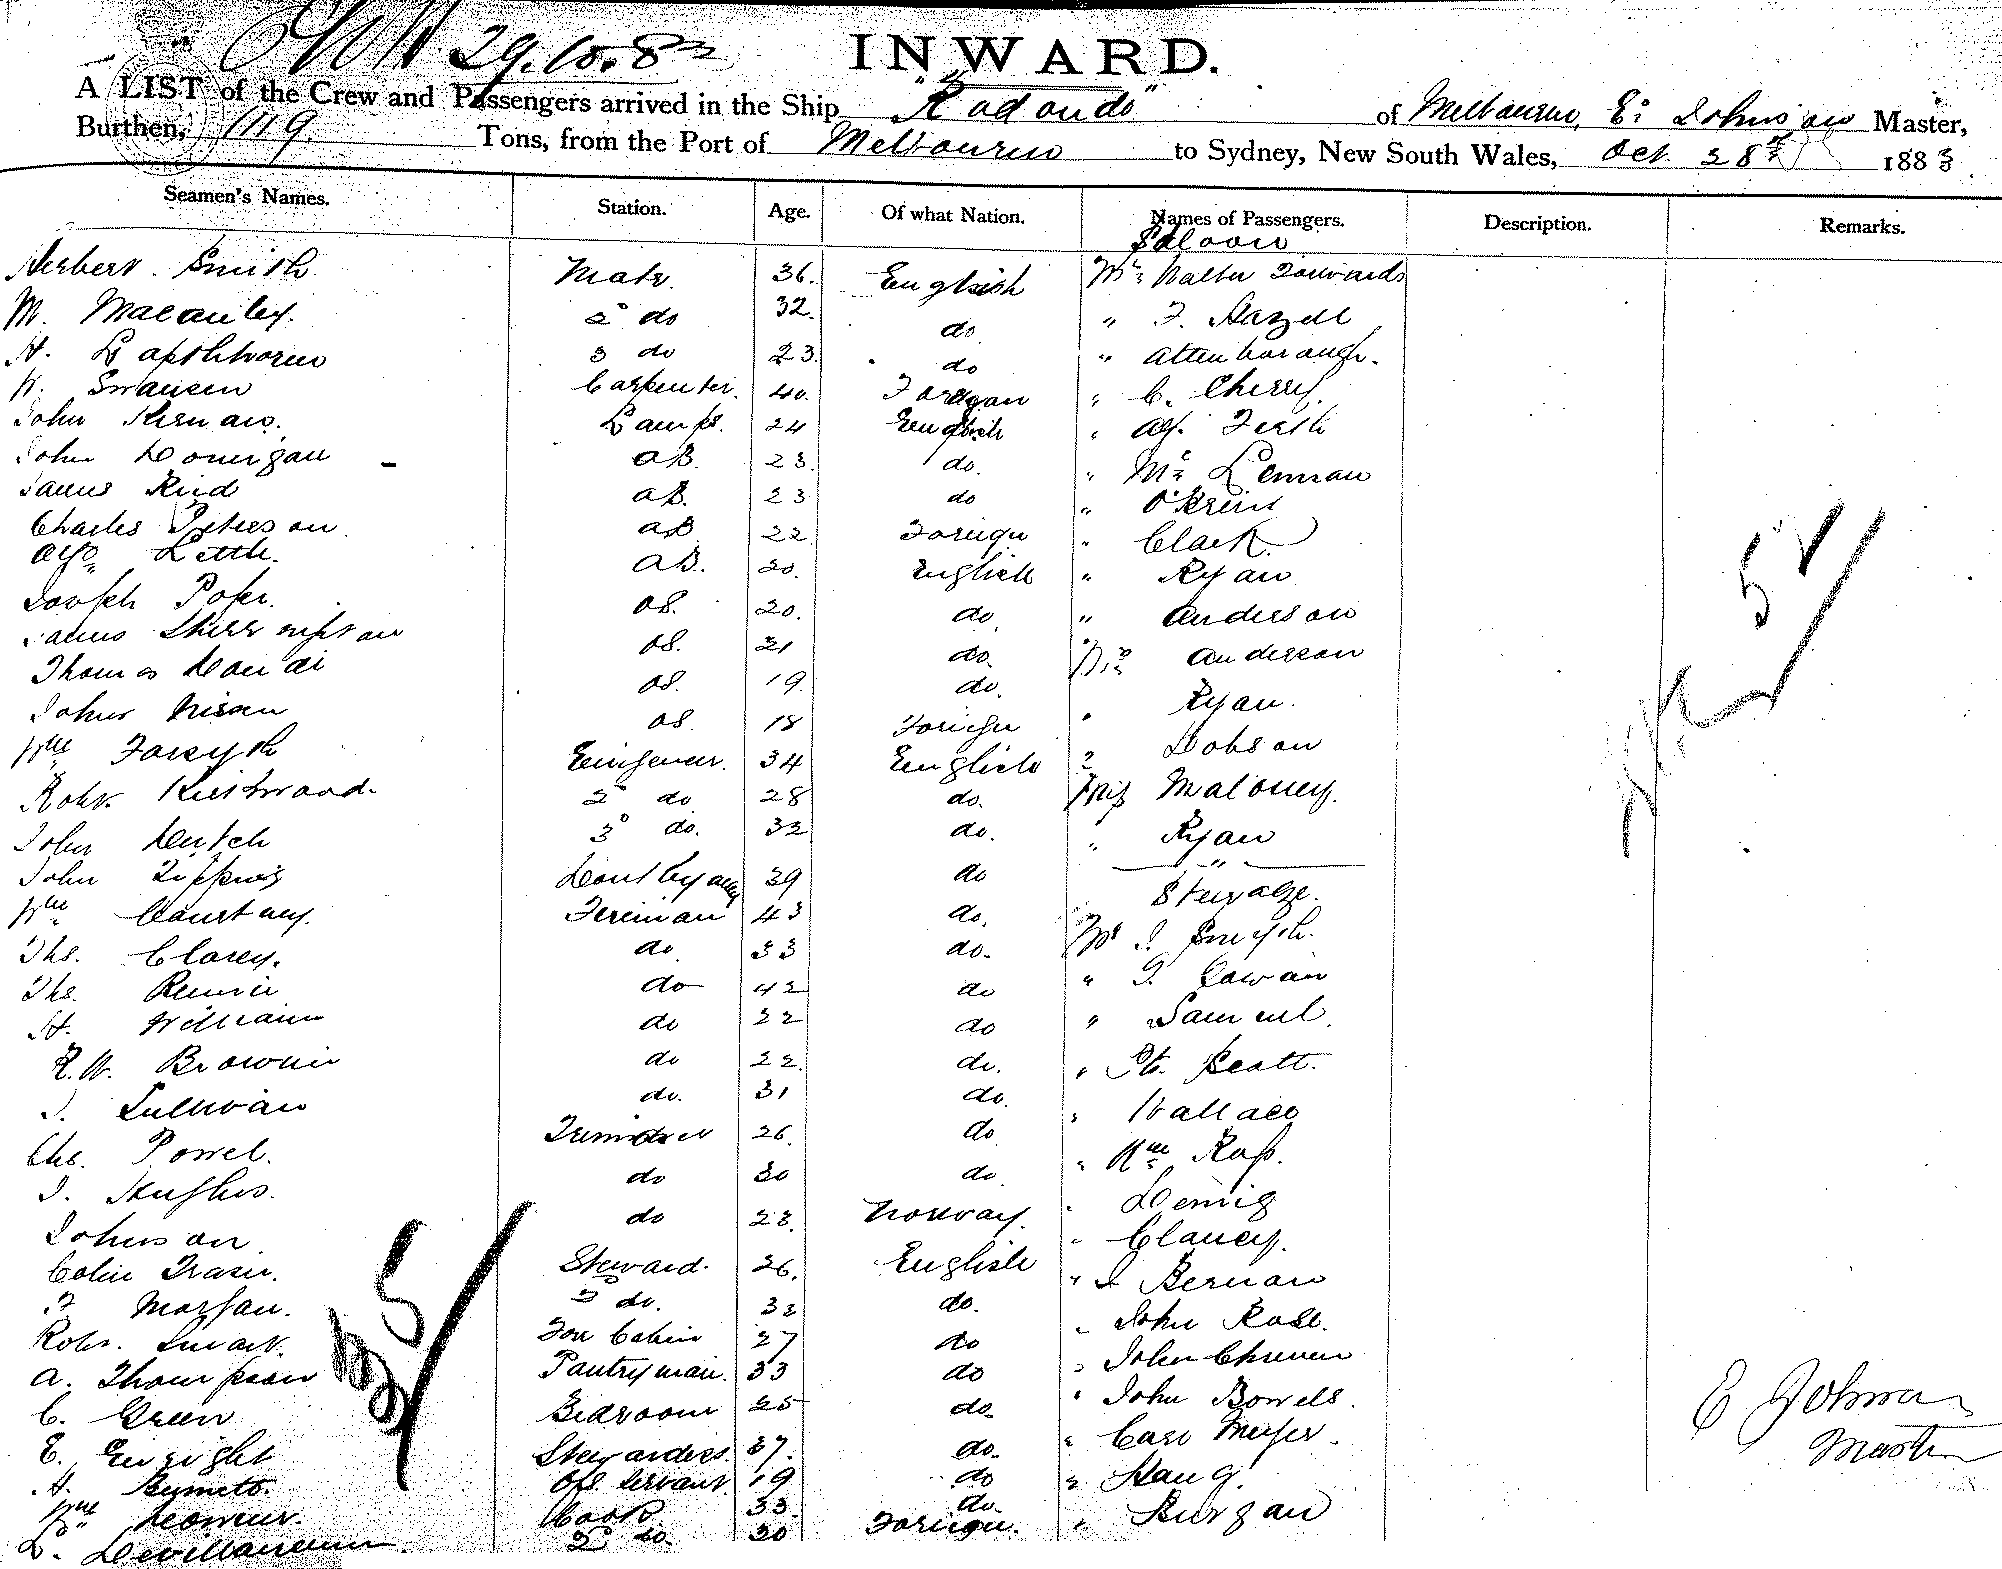 29.10.83
INWARD.
A LIST of the Crew and Passengers arrived in the Ship "Rodondo" of Melbourne, E. Johnson Master,
Burthen, 1119 Tons, from the Port of Melbourne to Sydney, New South Wales, Oct. 28th 1883
Seamen's Names. Station. Age. Of what Nation. Names of Passengers. Description. Remarks.
Saloon
Herbert Smith Mate. 36. English Mr. Walter
M. Macauley. 2d do 32. do " F. Hazell
H. Lapthorne 3 do 23. do " Attenborough.
Swansen Carpenter. 40. Foregan " C. Cherry.
John Kernan. Lamps. 24 English " Alf. Firth
John Donergan AB. 23. do. " Mc Lennan
James Reid AB. 23 do " O'Brien
Charles Peterson AB 22 Foreign " Clark
Little. AB. 20. English " Ryan
Joseph Pope. OS. 20. do " Anderson
James OS. 21 do. Mrs Anderson
Thomas OS. 19. do. Ryan.
John Nisen OS 18 Foreign " Dobson
Wm Forsyth Eingeneer. 34 English
Robt. Kirkwood. 2d do 28 do. Miss Maloney.
John 3d do. 32 do. " Ryan
John Donkeyman 39 do "
Steerage.
Wm Courtney. Fireman 43 do. Mr J. Smyth.
Ths. Clarey. do 33 do. " Cowan
Ths. Rennie do 42 do " Samuel.
H. William do 22 do " Pt. Scott.
R.W. Brownie do 22. do. " Wallace
J. Sullivan do. 31 do. " Wm Ross.
Chs. Powel. Trimmer 26. do
J. Hughes. do 30 do. " Clancy.
Johnson do 23. Norway. " J Bernan
Colin Fraser. Steward. 26. English " John Rose.
F Morgan. 2 do. 32 do. " John
Robt. Smart. Fore Cabin 27 do " John Bowels.
A. Thompson Pantryman. 33 do " Carl Meyer.
C. Green Bedroom 25 do. " Haug.
E. Enright Stewardess. 37. do. "
H. Ofs. Servant. 19 do
Wm Cook 33. do.
L. 2d do. 30 Foreign.
51
35
E Johnson
Master